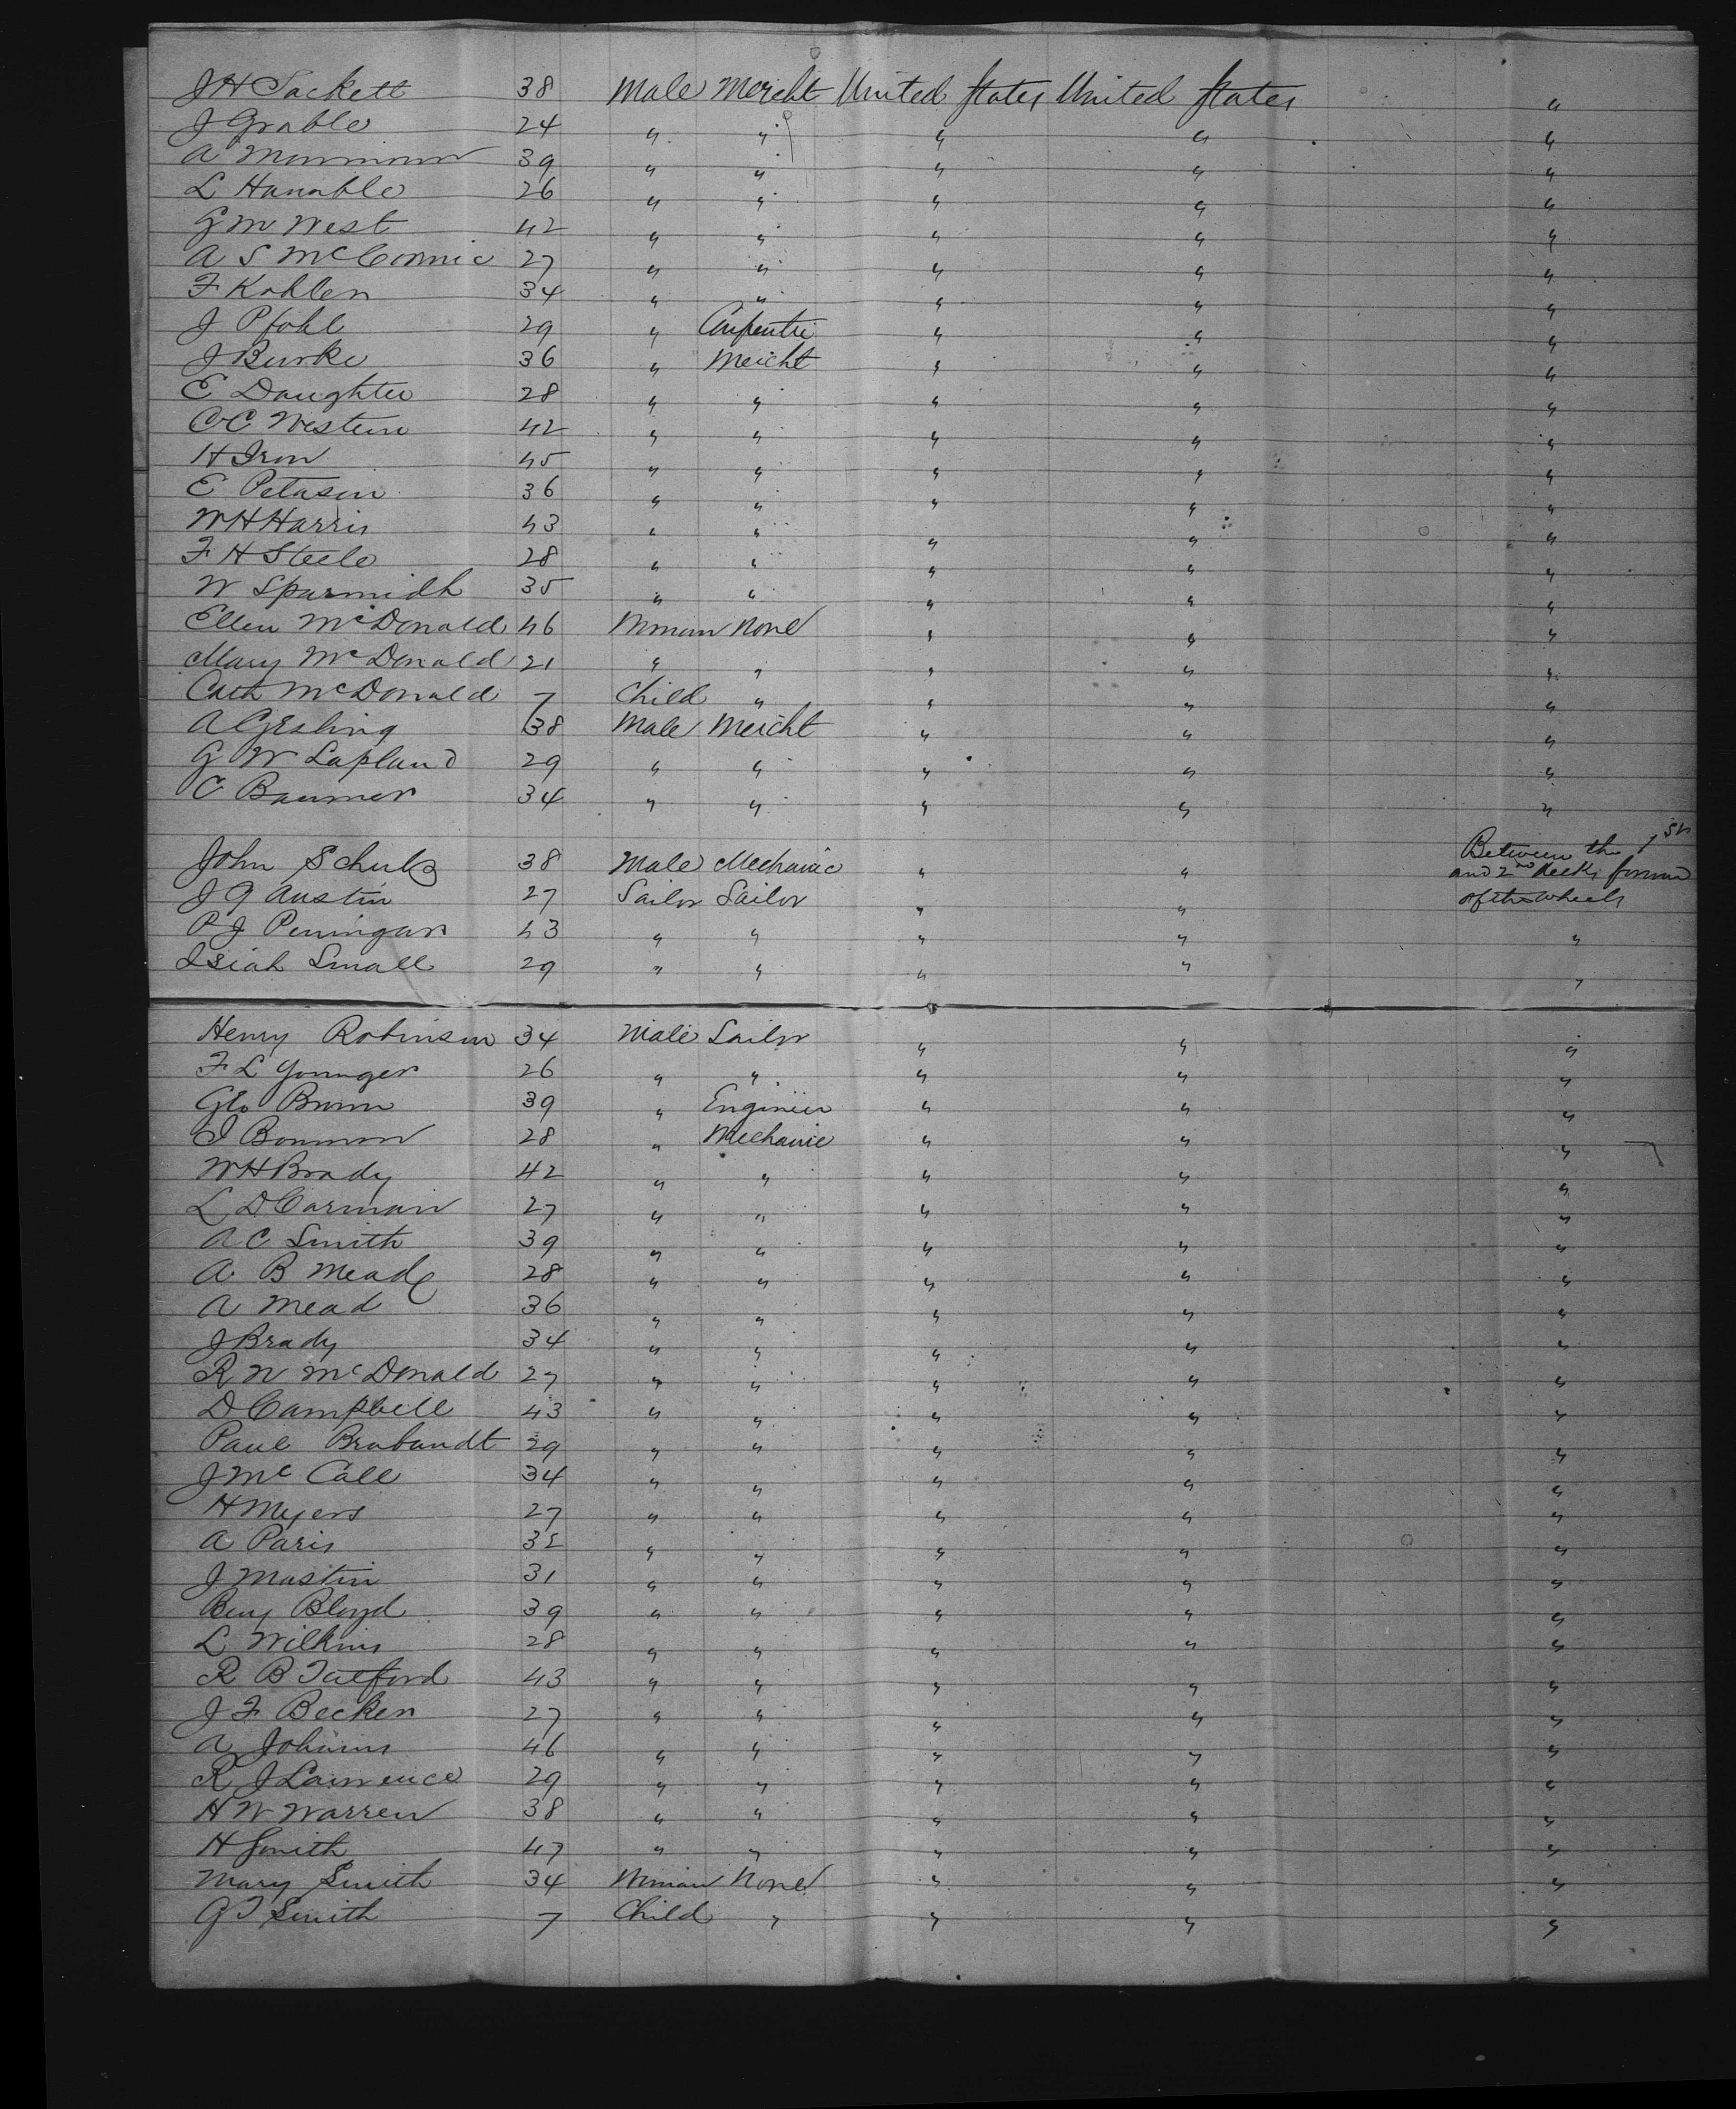 J H Sackett 38 Male Mercht United States United States "
J Grable 24 " " " " "
A Monmonn 39 " " " " "
L Hannble 26 " " " " "
G M West 42 " " " " "
A S McCormic 27 " " " " "
F Kohlen 34 " " " " "
J Pfohl 29 " Carpenter " " "
J Burke 36 " Mercht " " "
E Daughter 28 " " " " "
C C Western 42 " " " " "
H Iron 45 " " " " "
E Petasin 36 " " " " "
W H Harris 43 " " " " "
F H Steele 28 " " " " "
W Sparmidh 35 " " " " "
Ellen McDonald 46 Woman None " " "
Mary McDonald 21 " " " " "
Cath McDonald 7 Child " " " "
A Gesling 38 Male Mercht " " "
G W Lapland 29 " " " " "
C Baumer 34 " " " " "
John Schulz 38 Male Mechanic " " Between the 1st
and 2nd Decks forward
J G Austin 27 Sailor Sailor " " of the wheels
P J Peningar 43 " " " " "
Isiah Small 29 " " " " "
Henry Robinson 34 Male Sailor " " "
F L Younger 26 " " " " "
Geo Brown 39 " Engineer " " "
I Bowman 28 " Mechanic " " "
W H Brady 42 " " " " "
L D Carman 27 " " " " "
A C Smith 39 " " " " "
A B Meade 28 " " " " "
A Mead 36 " " " " "
J Brady 34 " " " " "
R N McDonald 27 " " " " "
D Campbell 43 " " " " "
Paul Brabandt 29 " " " " "
J McCall 34 " " " " "
H Myers 27 " " " " "
A Paris 32 " " " " "
J Mastin 31 " " " " "
Benj Bloyd 39 " " " " "
L Wilkins 28 " " " " "
R B Talford 43 " " " " "
J F Becker 27 " " " " "
A Johnns 46 " " " " "
R J Lawrence 29 " " " " "
H W Warren 38 " " " " "
H Smith 47 " " " " "
Mary Smith 34 Woman None " " "
G T Smith 7 Child " " " "